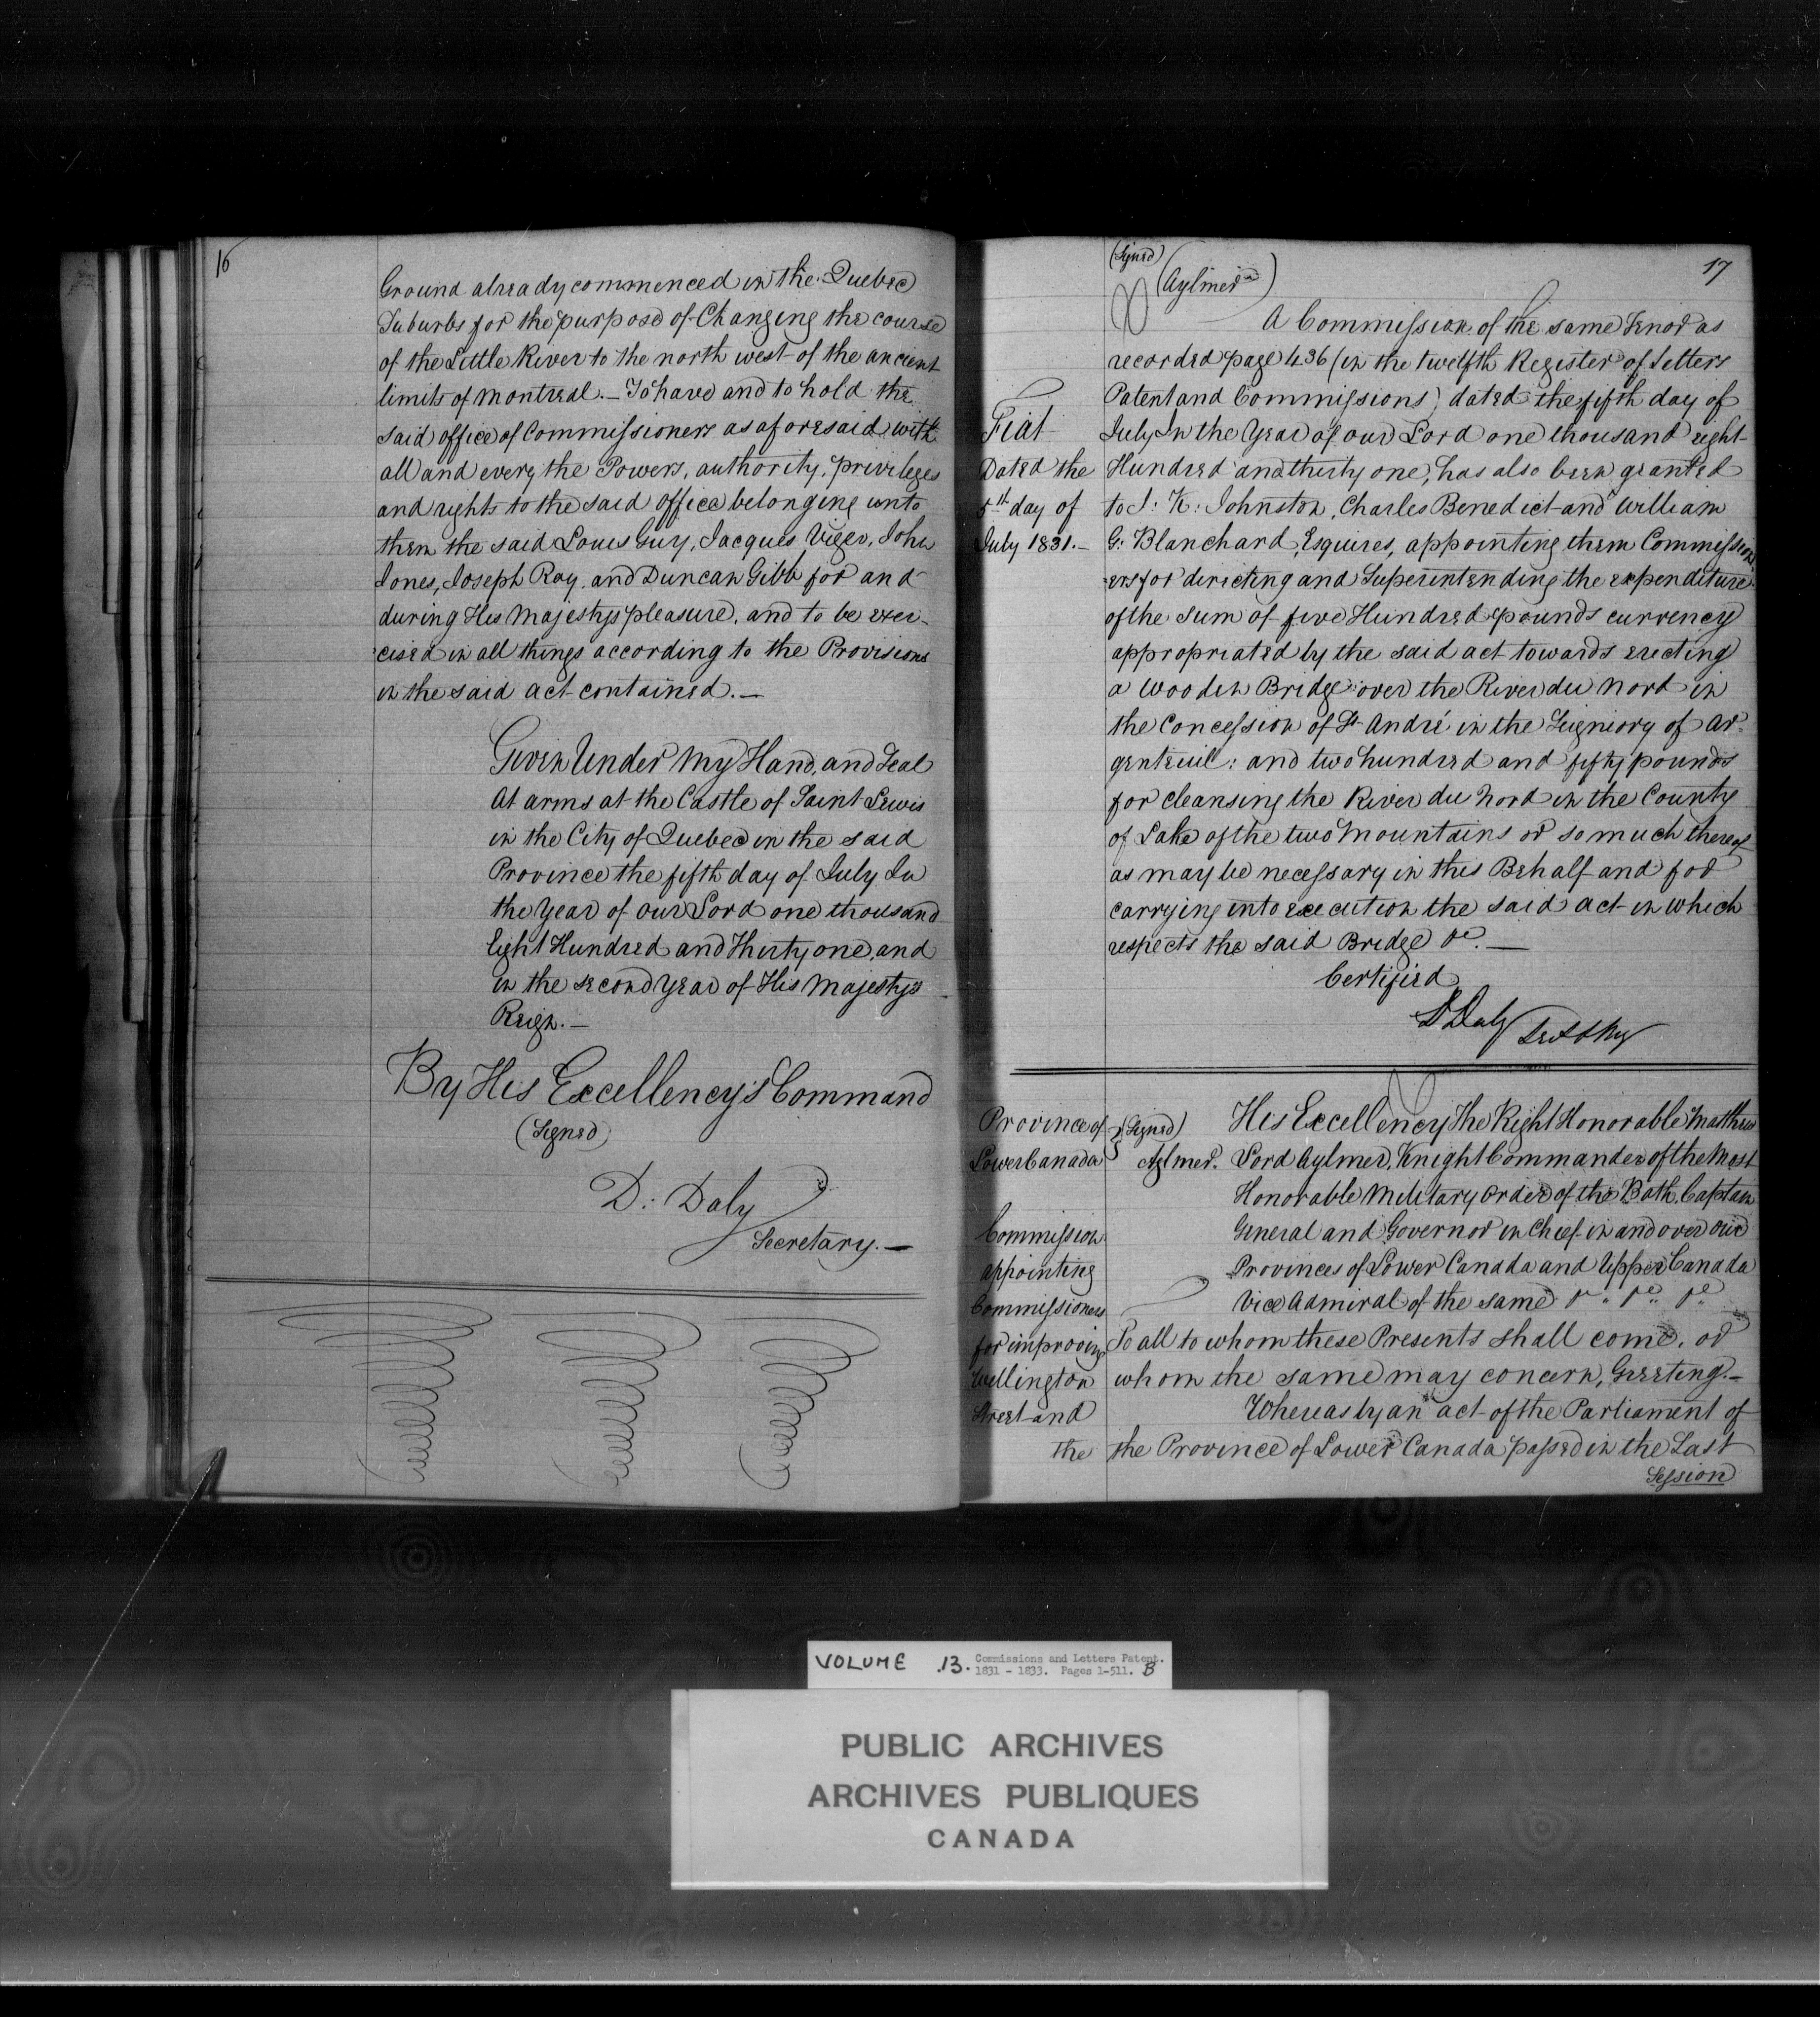 16
Ground already commenced in the Quebec
Suburbs for the purpose of Changing the course
of the Little River to the north west of the ancient
limits of Montreal. — To have and to hold the
said office of Commissioners as aforesaid with
all and every the Powers, authority, privileges
and rights to the said office belonging unto
them the said Louis Guy, Jacques Viger, John
Jones, Joseph Roy, and Duncan Gibb for and
during His Majestys pleasure, and to be exer-
cised in all things according to the Provisions
in the said act contained. —
Given Under My Hand, and Seal
At arms at the Castle of Saint Lewis
in the City of Quebec in the said
Province the fifth day of July In
the Year of our Lord one thousand
Eight Hundred and Thirty one, and
in the second Year of His Majesty's
Reign. —
By His Excellency's Command
(Signed)
D: Daly
Secretary. —
17
(Signed)
(Aylmer)
A Commission of the same tenor as
recorded page 436 (in the twelfth Register of Letters
Patent and Commissions) dated the fifth day of
July In the Year of our Lord one thousand eight
Hundred and thirty one, has also been granted
to J: K: Johnston, Charles Benedict and William
G: Blanchard, Esquires, appointing them Commission
ers for directing and Superintending the expenditure
of the Sum of five Hundred pounds currency
appropriated by the said act towards erecting
a wooden Bridge over the River du Nord in
the Concession of St André in the Seigniory of Ar-
genteuil: and two hundred and fifty pounds
for cleansing the River du Nord in the County
of Lake of the two Mountains or so much thereof
as may be necessary in this Behalf and for
carrying into execution the said act in which
respects the said Bridge &c. —
Certified
D Daly
Fiat
Dated the
5th day of
July 1831. —
Province of
Lower Canada
(Signed)
Aylmer.
His Excellency The Right Honorable Matthew
Lord Aylmer, Knight Commander of the Most
Honorable Military Order of the Bath, Captain
General and Governor in Chief in and over our
Provinces of Lower Canada and Upper Canada
Vice Admiral of the same &c &c &c
To all to whom these Presents shall come, or
whom the same may concern, Greeting. —
Whereas by an act of the Parliament of
the Province of Lower Canada passed in the Last
Session
Commission
appointing
Commissioners
for improving
Wellington
Street and
the
VOLUME 13. Commissions and Letters Patent.
1831 - 1833. Pages 1-511. B
PUBLIC ARCHIVES
ARCHIVES PUBLIQUES
CANADA